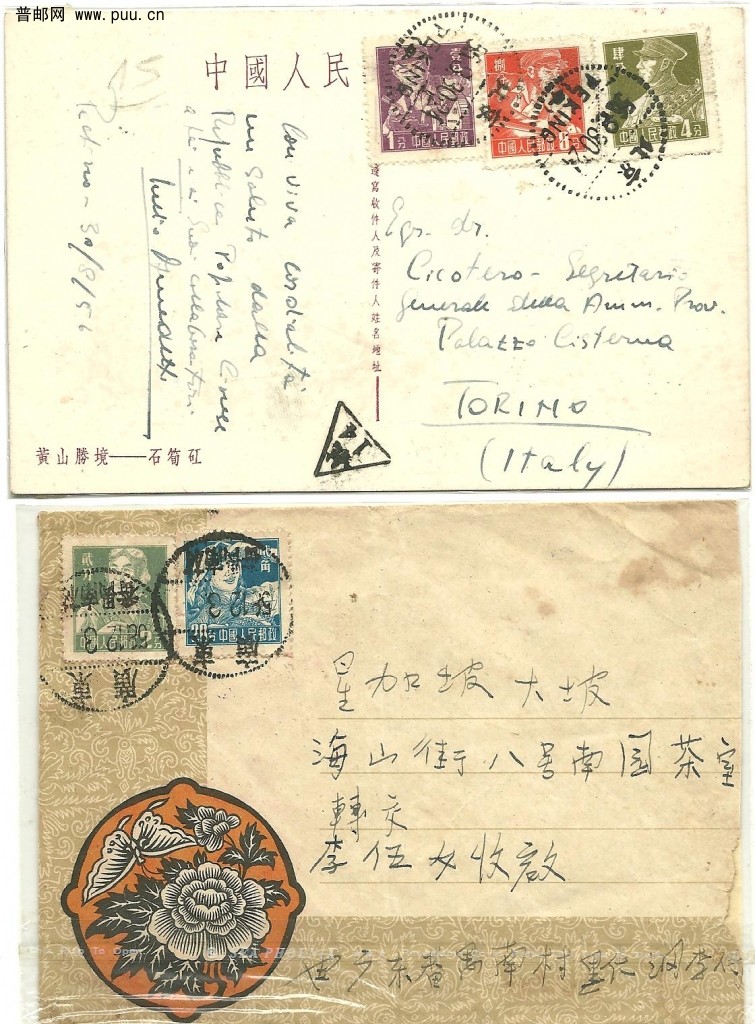 普邮网 www.puu.cn
中國人民
Con viva cordialità
un saluto dalla
Repubblica Popolare Cinese
a Lei e ai Suoi collaboratori
30/8/56
壹分
1分 中國人民郵政
捌
中國人民郵政 8分
肆分
中國人民郵政 4分
PEKING
北京
書寫收件人及寄件人姓名地址
Egr. dr.
Cicotero - Segretario
Generale della Amm. Prov.
Palazzo Cisterna
TORINO
(Italy)
黃山勝境——石筍矼
中國人民郵政
貳角
20分 中國人民郵政
廣東
56.12.3
廣東
56.12.3
星加坡 大坡
海山街八号南园茶室
轉交
李伍女收啟